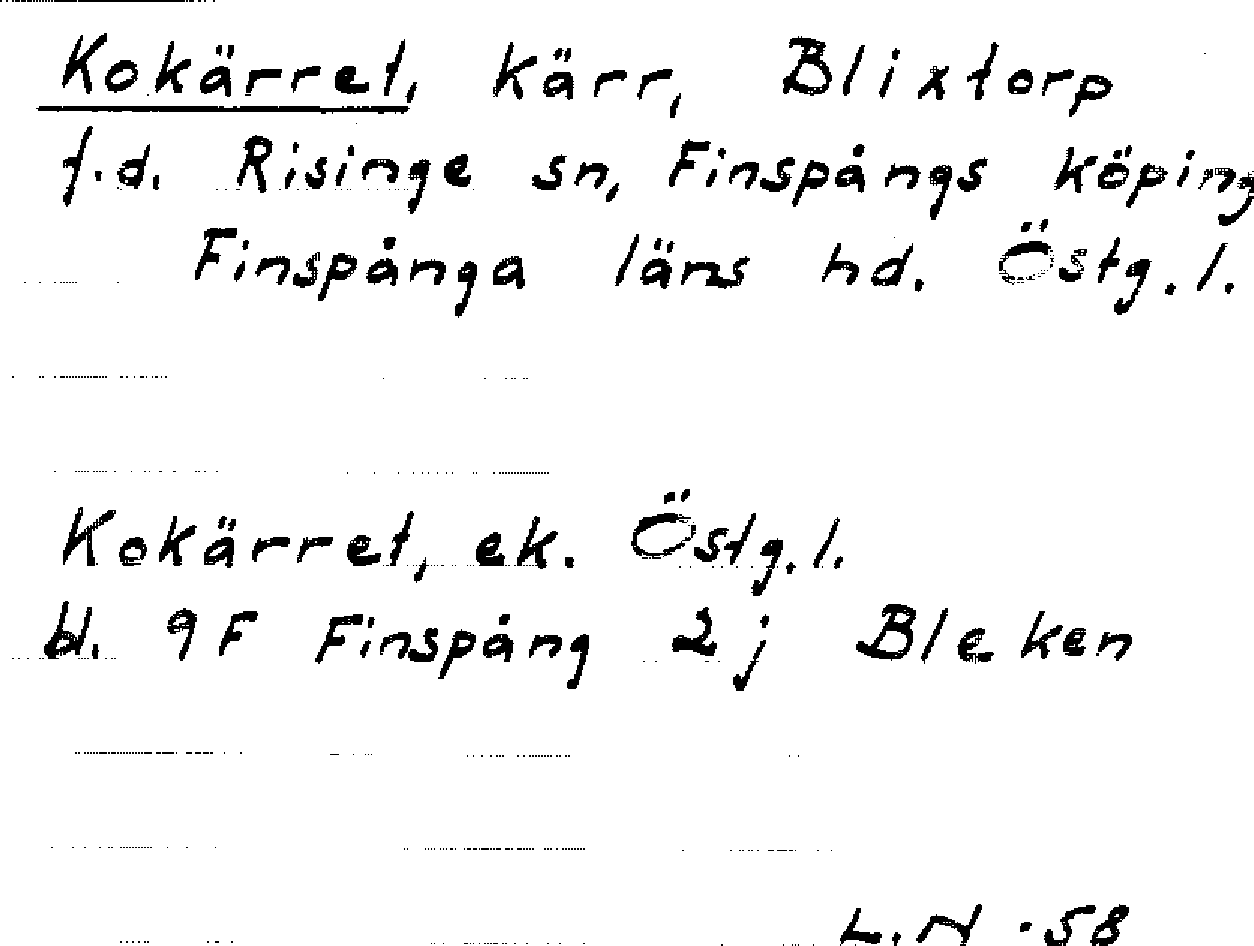 Kokärret, kärr, Blixtorp
f.d. Risinge sn, Finspångs köping
Finspånga läns hd. Östg.l.
Kokärret, ek. Östg.l.
bl. 9F Finspång 2j Bleken
L.N. 58